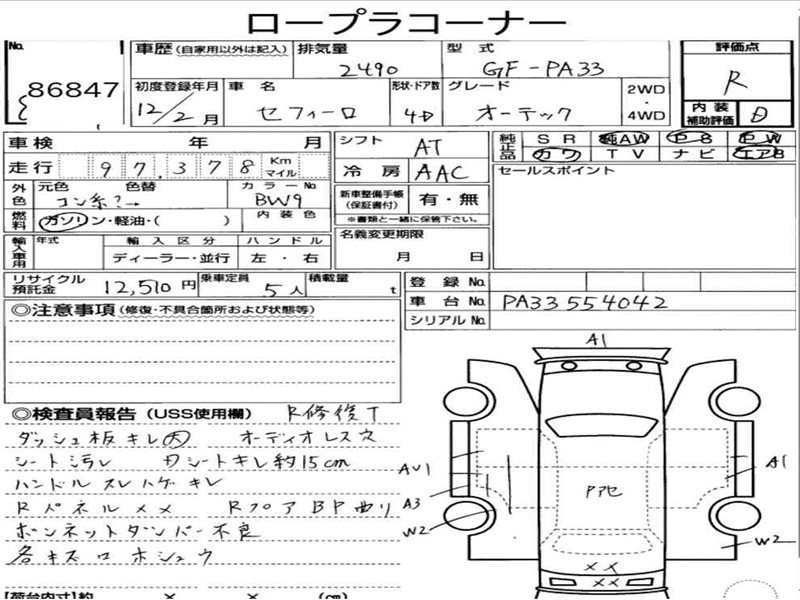 ロープラコーナー
No. 86847
車歴 (自家用以外は記入) 排気量 2490 型式 GF-PA33
初度登録年月 12/2月 車名 セフィーロ 形状・ドア数 4D グレード オーテック 2WD・4WD
評価点 R
内装補助評価 D
車検 年 月 シフト AT
走行 97,378 Km マイル 冷房 AAC
純正品 SR 純AW PS PW
カワ TV ナビ エアB
セールスポイント
外色 元色 コン系?→ 色替 カラーNo. BW9
新車整備手帳 (保証書付) 有・無
※書類と一緒に保管下さい。
燃料 ガソリン・軽油・( ) 内装色
名義変更期限 月 日
輸入車用 年式 輸入区分 ディーラー・並行 ハンドル 左・右
リサイクル預託金 12,510円 乗車定員 5人 積載量 t
登録No.
車台No. PA33554042
シリアルNo.
◎注意事項 (修復・不具合箇所および状態等)
◎検査員報告 (USS使用欄) R修復T
ダッシュ板キレ大 オーディオレス穴
シート汚レ Dシートキレ約15cm
ハンドルスレハゲキレ
Rパネルメメ RフロアBP曲リ
ボンネットダンパー不良
各キズロホシュウ
A1
AU1
A3
W2
Pアセ
A1
W2
××
××
【荷台内寸】約 × × (cm)